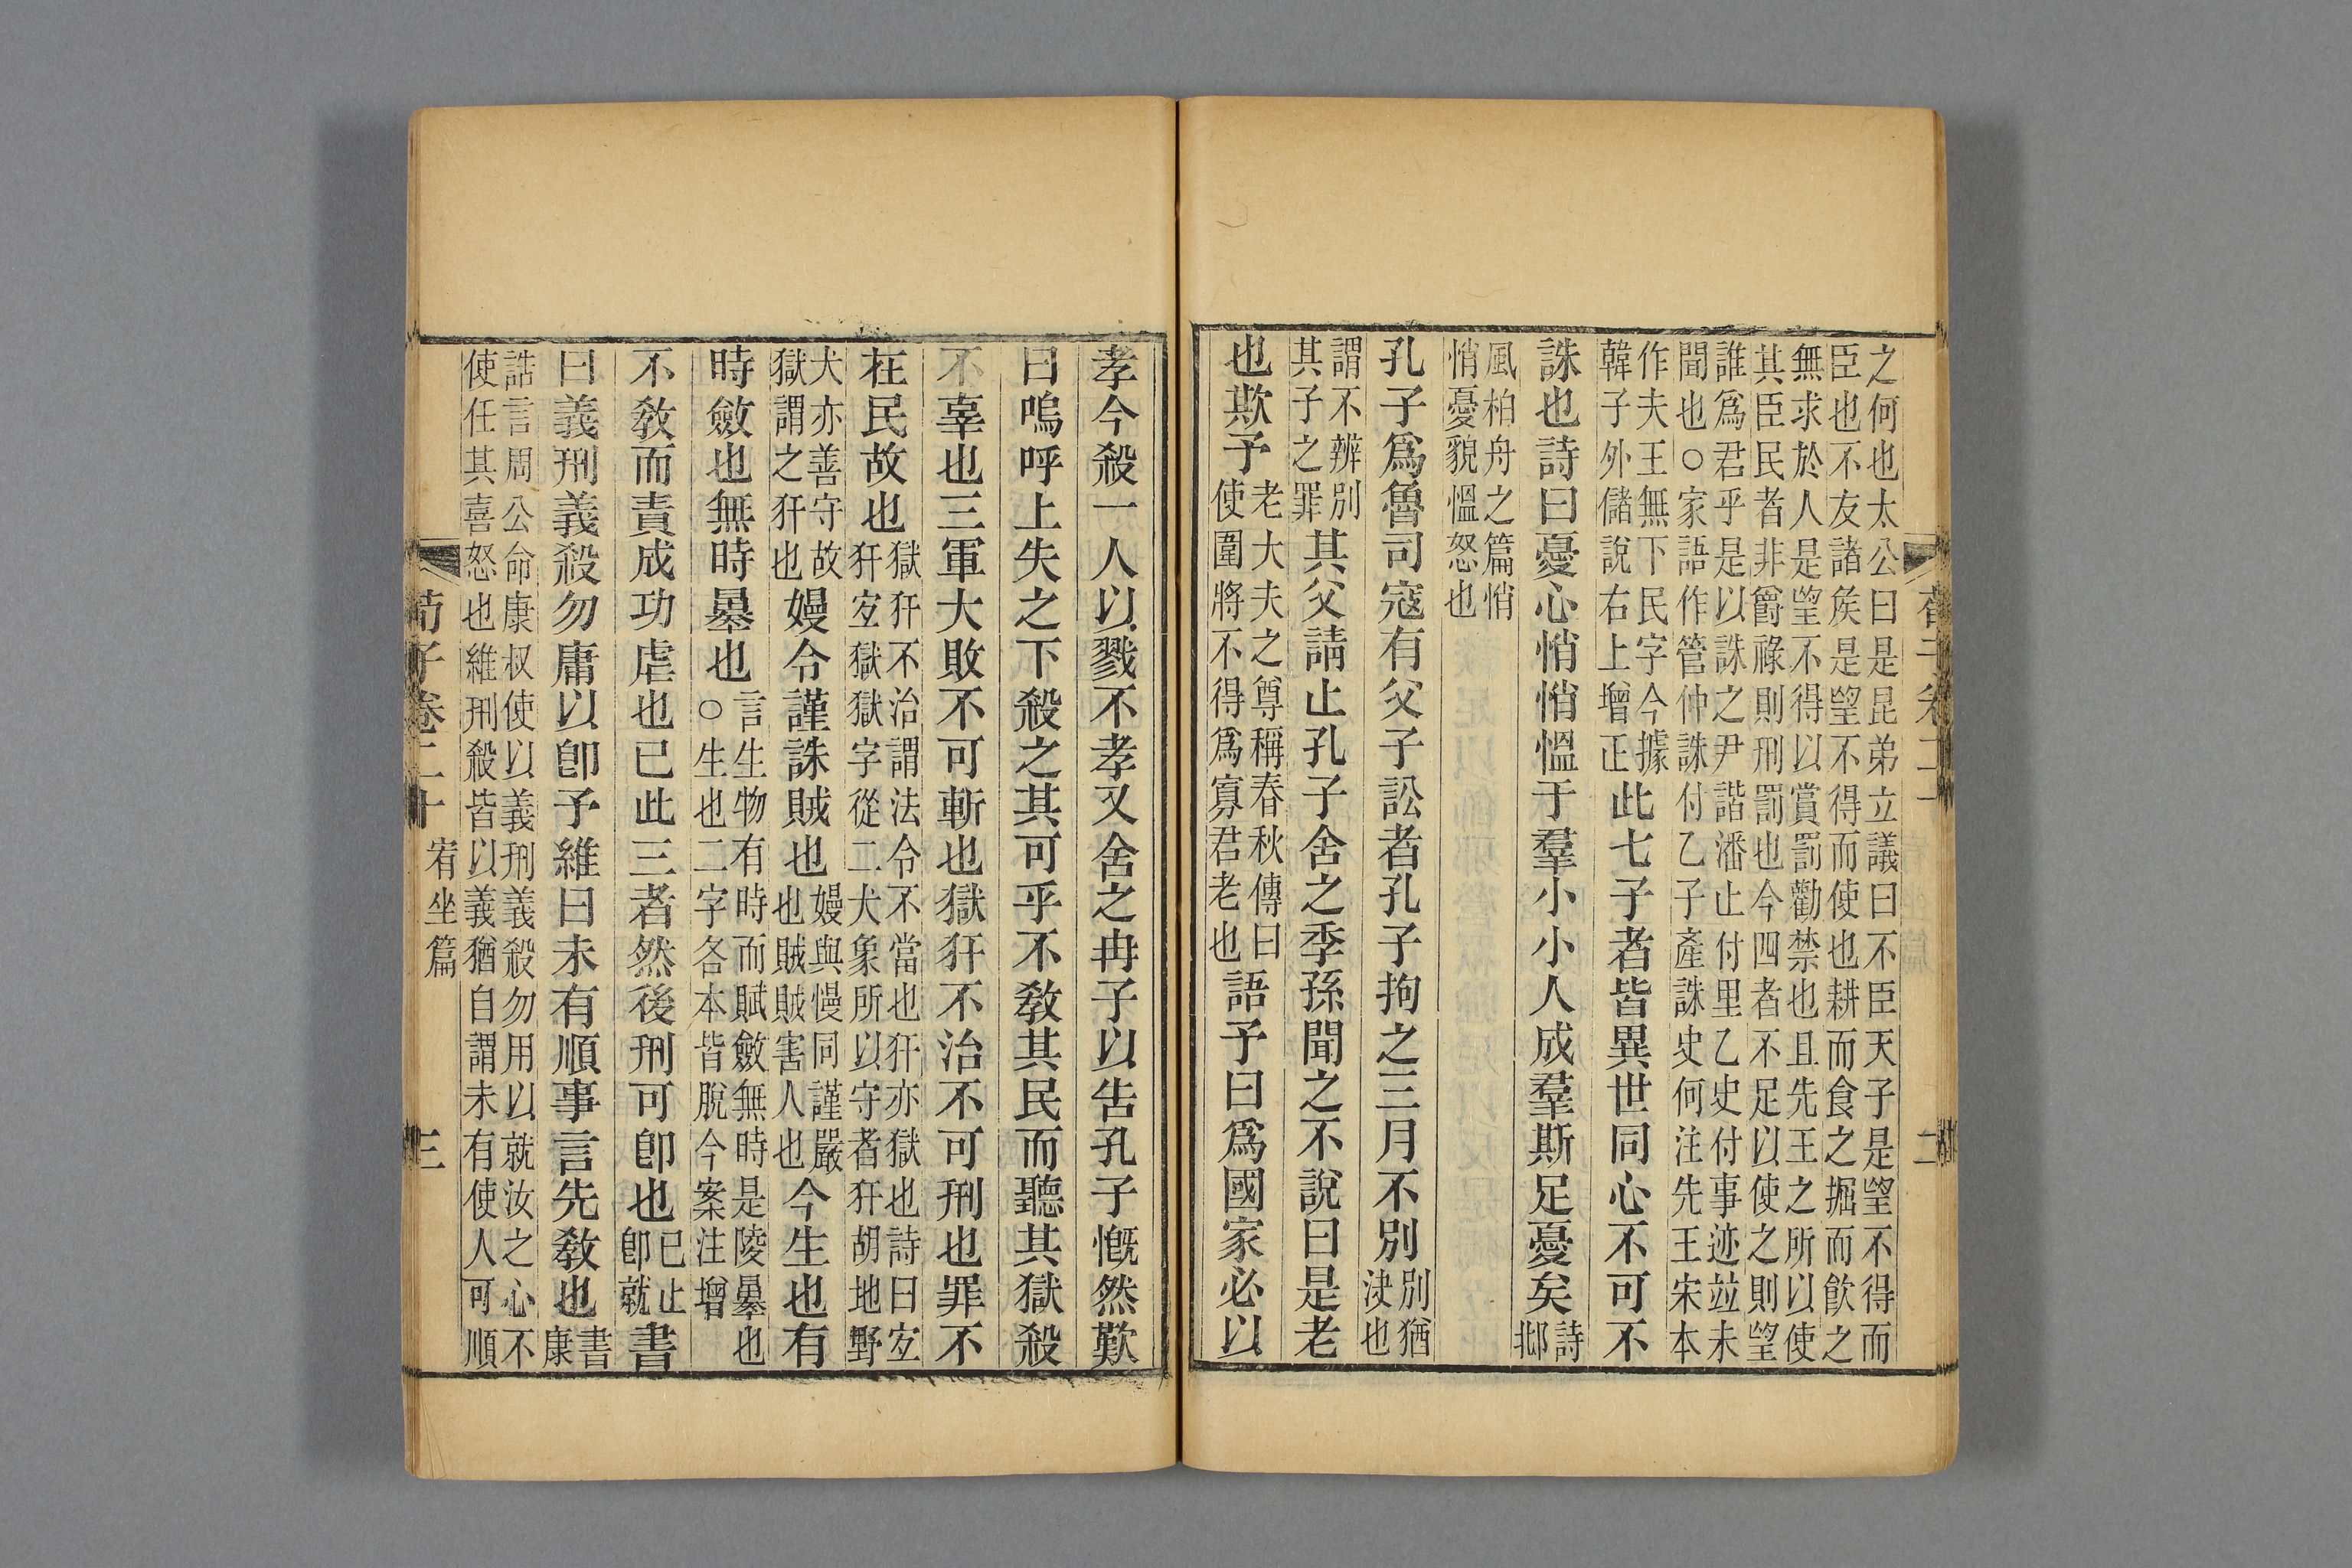 之何也太公曰是昆弟立議曰不臣天子是望不得而
臣也不友諸矦是望不得而使也耕而食之掘而飮之
無求於人是望不得以賞罰勸禁也且先王之所以使
其臣民者非爵祿則刑罰也今四者不足以使之則望
誰爲君乎是以誅之尹諧潘止付里乙史付事迹竝未
聞也○家語作管仲誅付乙子產誅史何注先王宋本
作夫王無下民字今據
韓子外儲說右上增正
此七子者皆異世同心不可不
誅也詩曰憂心悄悄慍于羣小小人成羣斯足憂矣
詩
邶
風柏舟之篇悄
悄憂貌慍怒也
孔子爲魯司寇有父子訟者孔子拘之三月不別
別猶
決也
謂不辨別
其子之罪
其父請止孔子舍之季孫聞之不說曰是老
也欺予
老大夫之尊稱春秋傳曰
使圍將不得爲寡君老也
語予曰爲國家必以
二
孝今殺一人以戮不孝又舍之冉子以告孔子慨然歎
曰嗚呼上失之下殺之其可乎不敎其民而聽其獄殺
不辜也三軍大敗不可斬也獄犴不治不可刑也罪不
在民故也
獄犴不治謂法令不當也犴亦獄也詩曰宐
犴宐獄獄字從二犬象所以守者犴胡地野
犬亦善守故
獄謂之犴也
嫚令謹誅賊也
嫚與慢同謹嚴
也賊賊害人也
今生也有
時斂也無時暴也
言生物有時而賦斂無時是陵暴也
○生也二字各本皆脫今案注增
不敎而責成功虐也已此三者然後刑可卽也
已止
卽就
書
曰義刑義殺勿庸以卽予維曰未有順事言先敎也
書
康
誥言周公命康叔使以義刑義殺勿用以就汝之心不
使任其喜怒也維刑殺皆以義猶自謂未有使人可順
荀子卷二十
宥坐篇
三